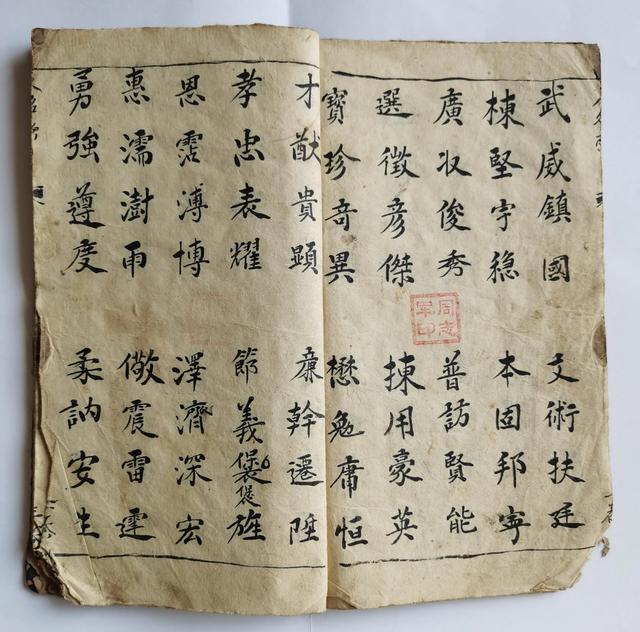 武威鎮國 文術扶廷
棟堅宇穩 本固邦寧
廣収俊秀 普訪賢能
選徵彥傑 揀用豪英
寶珍奇異 懋庸恒
才猷貴顯 廉幹遷陞
孝忠表耀 節義旌
恩霑溥博 澤濟深宏
惠濡澍雨 儆震雷霆
勇強遵度 柔訥安生
周志军印